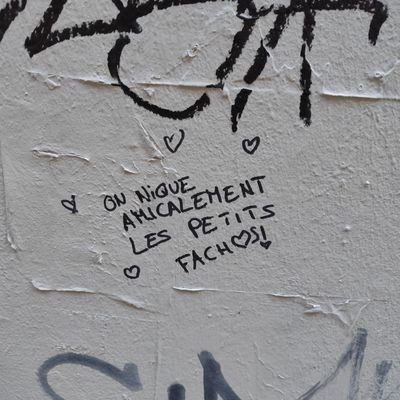 ON NIQUE
AMICALEMENT
LES PETITS
FACH♡S!